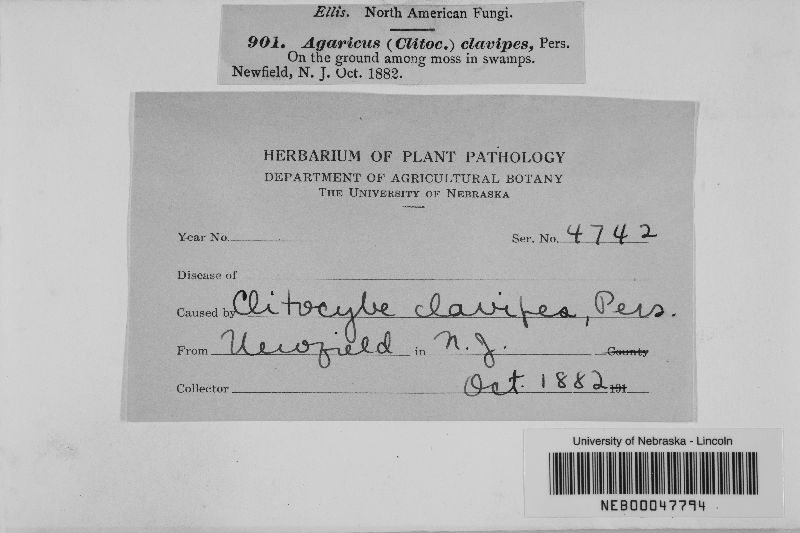 Ellis. North American Fungi.
901. Agaricus (Clitoc.) clavipes, Pers.
On the ground among moss in swamps.
Newfield, N. J. Oct. 1882.
HERBARIUM OF PLANT PATHOLOGY
DEPARTMENT OF AGRICULTURAL BOTANY
THE UNIVERSITY OF NEBRASKA
Year No. Ser. No. 4742
Disease of
Caused by Clitocybe clavipes, Pers.
From Newfield in N. J. County
Collector Oct. 1882 191
University of Nebraska - Lincoln
NEB00047794